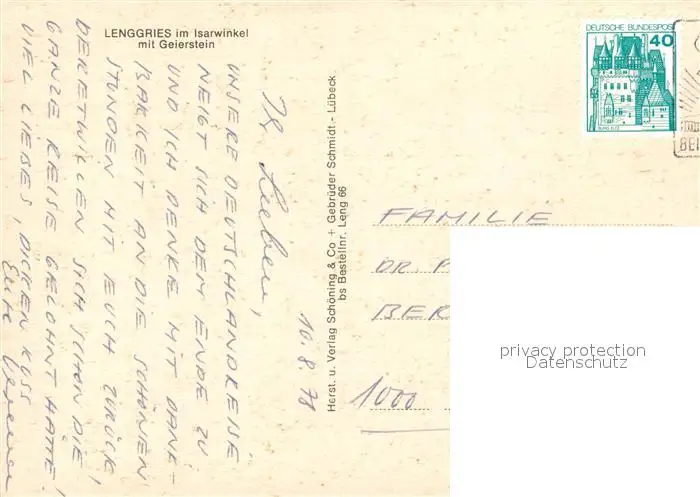 LENGGRIES im Isarwinkel
mit Geierstein
Ihr Lieben,
UNSERE DEUTSCHLANDREISE
NEIGT SICH DEM ENDE ZU
UND ICH DENKE MIT DANK-
BARKEIT AN DIE SCHÖNEN
STUNDEN MIT EUCH ZURÜCK,
DERETWILLEN SICH SCHON DIE
GANZE REISE GELOHNT HÄTTE!
VIEL LIEBES, DICKEN KUSS
Eure
10.8.78
Herst. u. Verlag Schöning & Co + Gebrüder Schmidt - Lübeck
bs Bestellnr. Leng 66
DEUTSCHE BUNDESPOST
40
BURG ELTZ
BEI
FAMILIE
DR.
BER
1000
privacy protection
Datenschutz